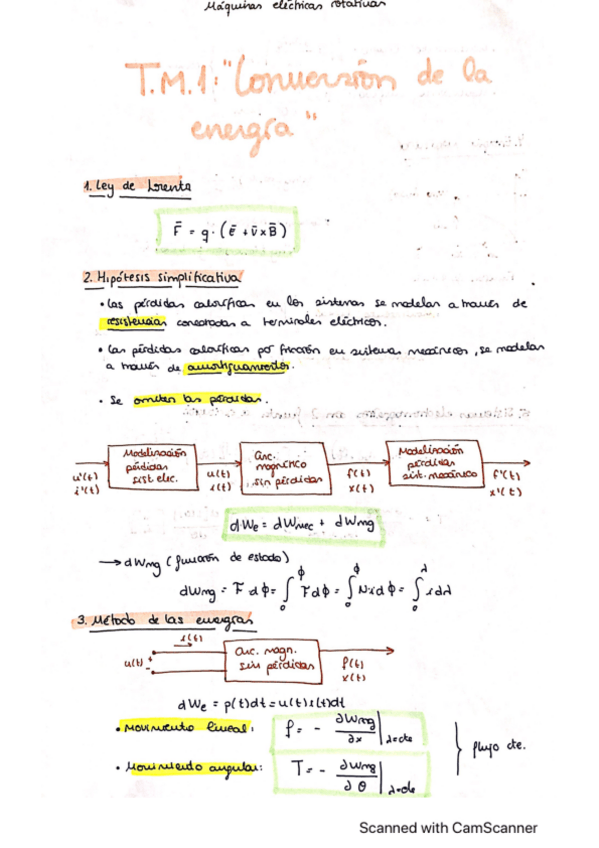 Máquinas eléctricas rotativas
T.M.1: "Conversión de la
energía"
1. Ley de Lorentz
F̄ = q · (ē + v̄ x B̄)
2. Hipótesis simplificativa
• Las pérdidas caloríficas en los sistemas se modelan a través de
resistencias conectadas a terminales eléctricos.
• Las pérdidas caloríficas por fricción en sistemas mecánicos, se modelan
a través de amortiguamientos.
• Se omiten las pérdidas.
u'(t)
i'(t)
Modelización
pérdidas
sist. elec.
u(t)
i(t)
Circ.
magnético
sin pérdidas
f(t)
x(t)
Modelización
pérdidas
sist. mecánico
f'(t)
x'(t)
dWe = dWmec + dWmg
→ dWmg (función de estado)
dWmg = F dϕ = ∫₀^ϕ F dϕ = ∫₀^ϕ N i dϕ = ∫₀^λ i dλ
3. Método de las energías
i(t)
u(t)
circ. magn.
sin pérdidas
f(t)
x(t)
dWe = p(t)dt = u(t)i(t)dt
• Movimiento lineal: f = - ∂Wmg/∂x | λ=cte
• Movimiento angular: T = - ∂Wmg/∂θ | λ=cte
} flujo cte.
Scanned with CamScanner